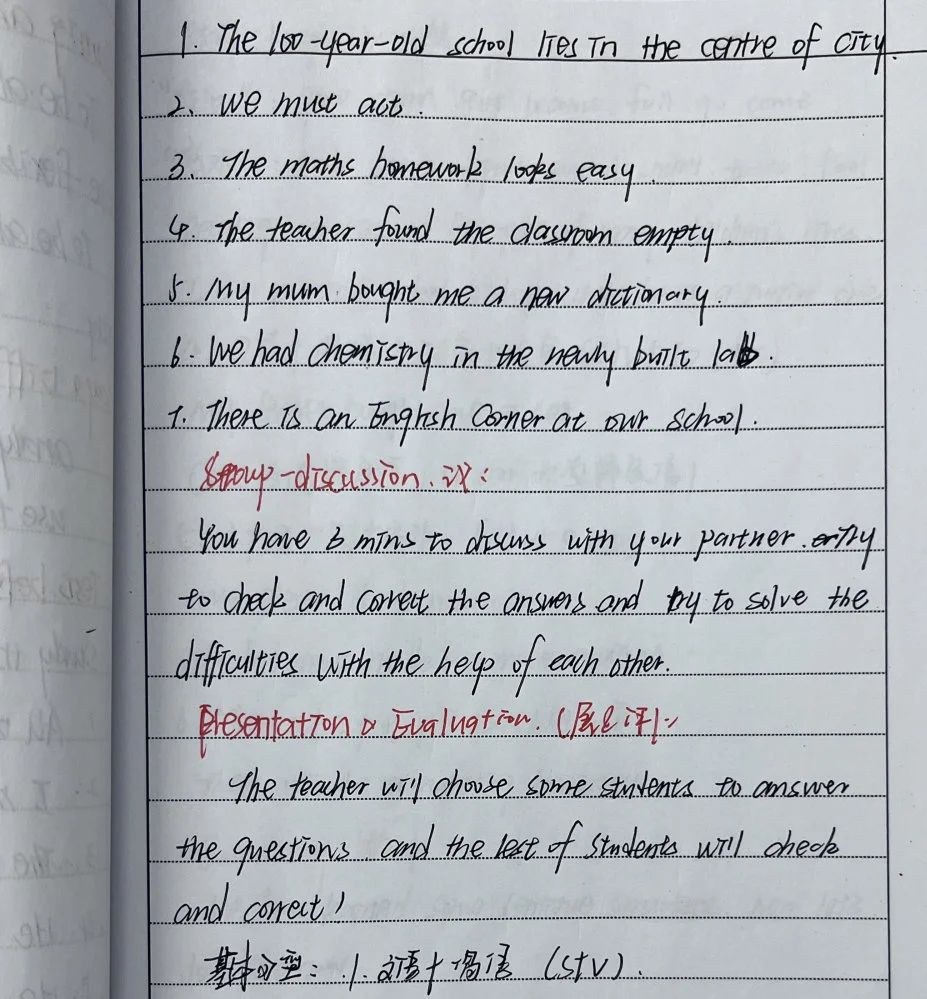 1. The 100-year-old school lies in the centre of city.
2. We must act.
3. The maths homework looks easy.
4. The teacher found the classroom empty.
5. My mum bought me a new dictionary.
6. We had chemistry in the newly built lab.
7. There is an English Corner at our school.
Group-discussion. 议:
You have 3 mins to discuss with your partner.
to check and correct the answers and try to solve the
difficulties with the help of each other.
Presentation & Evaluation. (展&评):
The teacher will choose some students to answer
the questions and the rest of students will check
and correct)
基本句型: 1. 主语+谓语 (S+V).